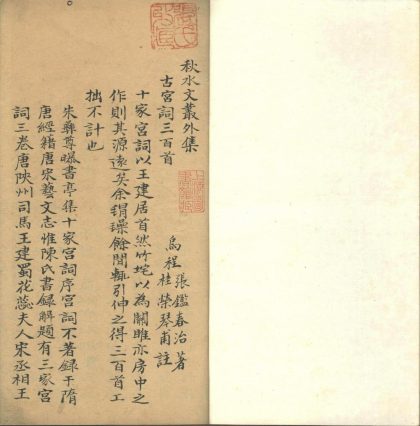 秋水文叢外集
古宮詞三百首
烏程張鑑春治著
桂榮琴甫註
十家宮詞以王建居首然竹垞以為關雎亦房中之
作則其源遠矣余課餘閒輒引伸之得三百首工
拙不計也
朱彝尊曝書亭集十家宮詞序宮詞不著錄于隋
唐經籍唐宋藝文志惟陳氏書錄解題有三家宮
詞三卷唐陝州司馬王建蜀花蕊夫人宋丞相王